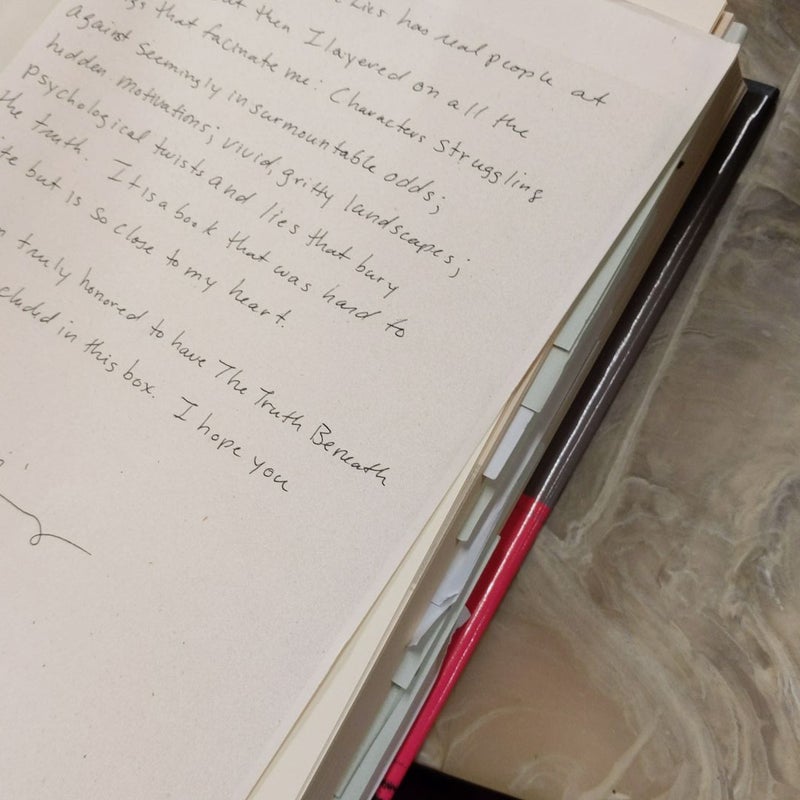 Lies has real people at
then I layered on all the
that facinate me: Characters struggling
against seemingly insurmountable odds;
hidden motivations; vivid, gritty landscapes;
psychological twists and lies that bury
the truth. It is a book that was hard to
but is so close to my heart.
truly honored to have The Truth Beneath
in this box. I hope you